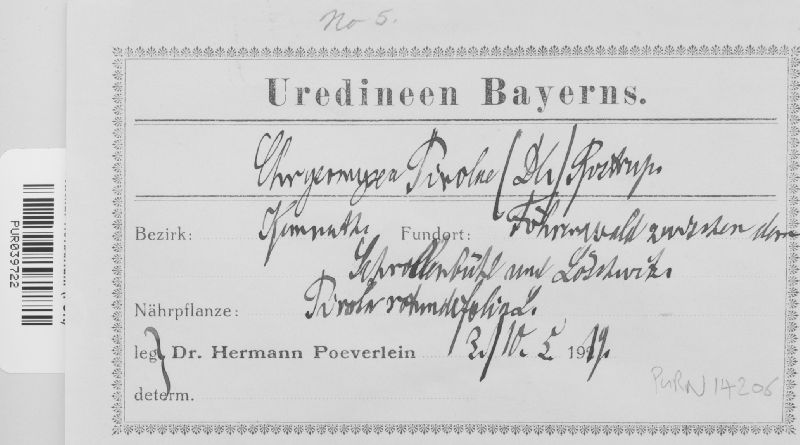 No 5.
Uredineen Bayerns.
Chrysomyxa Pirolae (DC.) Rostrup.
Bezirk: Kemnath. Fundort: Föhrenwald zwischen dem
und
Nährpflanze: Pirola rotundifolia L.
leg. Dr. Hermann Poeverlein 3./10. 19
determ.
PURN 14206
PUR839722